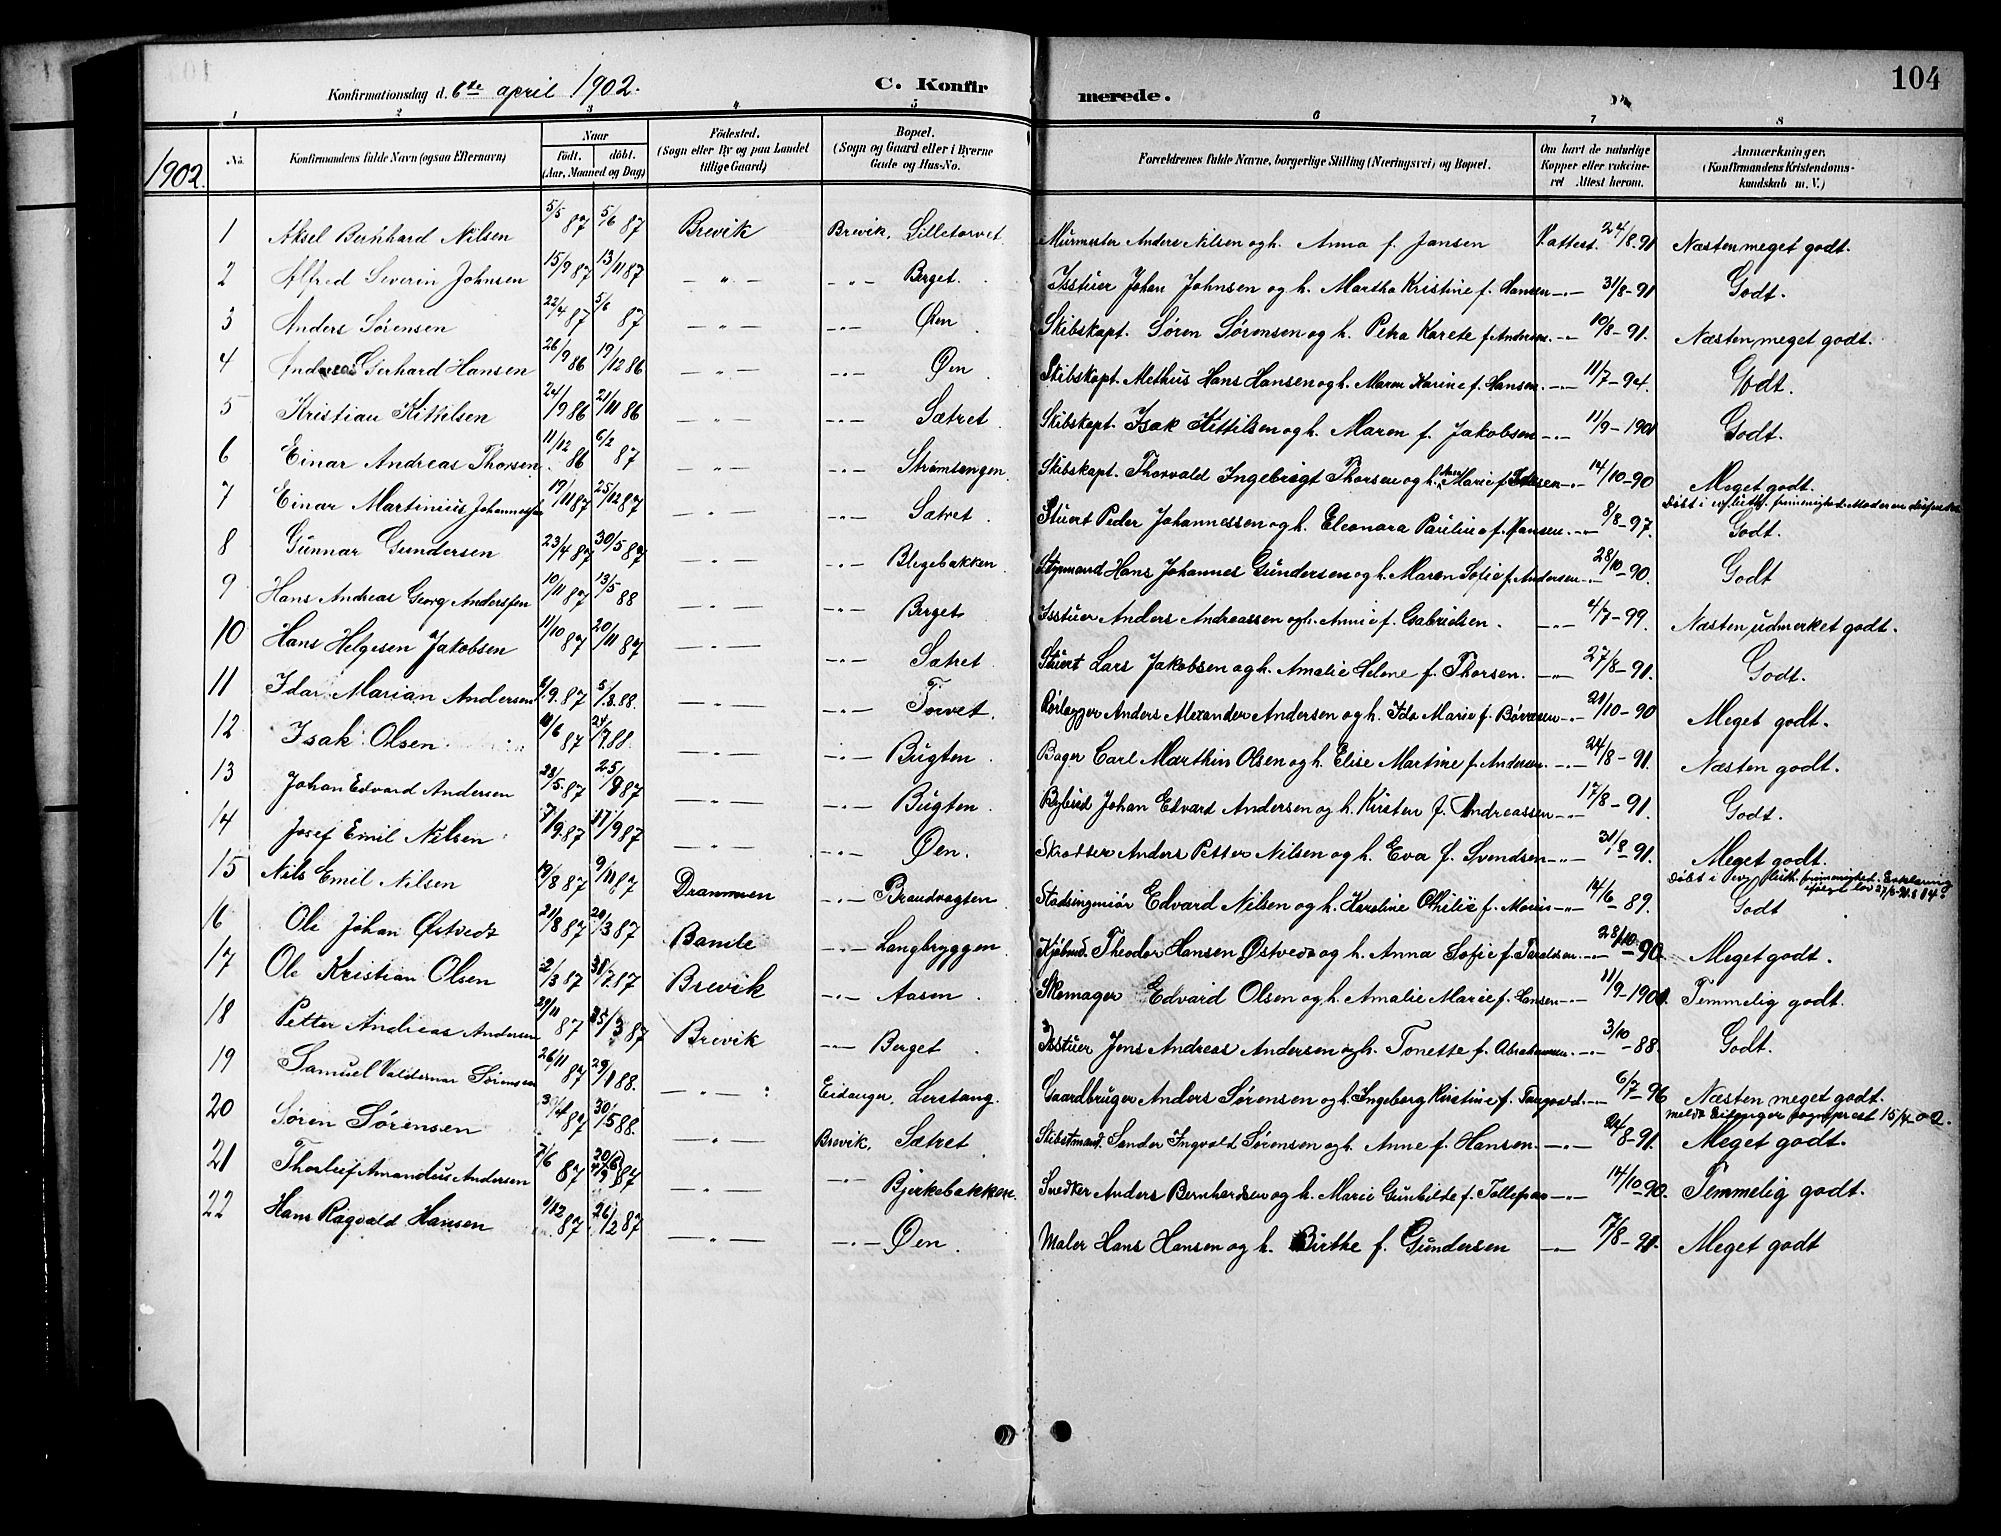 104
Konfirmationsdag d. 6te april 1902.
C. Konfirmerede.
1 2 3 4 5 6 7 8
1902.
No. Konfirmandens fulde Navn (ogsaa Efternavn) Naar födt. döbt. (Aar, Maaned og Dag) Födested. (Sogn eller By og paa Landet tillige Gaard) Bopæl. (Sogn og Gaard eller i Byerne Gade og Hus-No. Forældrenes fulde Navne, borgerlige Stilling (Næringsvei) og Bopæl. Om havt de naturlige Kopper eller vakcineret Attest herom. Anmærkninger. (Konfirmandens Kristendomskundskab m. V.)
1 Aksel Bernhard Nilsen 5/5 87 5/6 87 Brevik Brevik, Lilletorvet Murmester Anders Nilsen og h. Anna f. Jansen V.attest. 24/8-91 Næsten meget godt.
2 Alfred Severin Johnsen 15/9 87 13/11 87 — " — — " — Berget. Isstuer Johan Johnsen og h. Martha Kristine f. Hansen — " — 31/8-91 Godt.
3 Anders Sørensen 22/4 87 5/6 87 — " — — " — Øen Skibskapt. Søren Sørensen og h. Petra Karete f. Andersen. — " — 10/8-91. Næsten meget godt.
4 Andreas Gerhard Hansen 26/9 86 19/12 86 — " — — " — Øen Skibskapt. Methus Hans Hansen og h. Maren Karine f. Hansen. — " — 11/7-94. Godt.
5 Kristian Kittilsen 21/11 86 — " — — " — Sætret. Skibskapt. Isak Kittilsen og h. Maren f. Jakobsen — " — 11/9-1901 Godt.
6 Einar Andreas Thorsen 11/12 86 6/2 87 — " — — " — Strømtangen Skibskapt. Thorvald Ingebrigt Thorsen og h. Marie f. — " — 14/10-90 Meget godt.
7 Einar Martinius Johannessen 19/11 87 25/12 87 — " — — " — Sætret. Stuert Peder Johannessen og h. Eleonora Pauline f. Hansen. — " — 8/8-97. Døbt i ev. luth. frimenighed. Godt.
8 Gunnar Gundersen 23/4 87 30/5 87 — " — — " — Blegebakken Styrmand Hans Johannes Gundersen og h. Maren Sofie f. Andersen — " — 28/10-90. Godt
9 Hans Andreas Georg Anderssen 10/11 87 13/5 88 — " — — " — Berget Isstuer Anders Andreassen og h. Annie f. Gabrielsen. — " — 4/7-99. Næsten udmerket godt.
10 Hans Helgesen Jakobsen 11/10 87 20/11 87 — " — — " — Sætret Stuert Lars Jakobsen og h. Amalie Helene f. Thorsen. — " — 27/8-91. Godt.
11 Idar Marian Andersen 87 88. — " — — " — Torvet. Rørlægger Anders Alexander Andersen og h. Ida Marie f. — " — 21/10-90 Meget godt.
12 Isak Olsen 87 88. — " — — " — Bugten Bager Carl Marthin Olsen og h. Elise Martine f. Andersen. — " — 24/8-91. Næsten godt.
13 Johan Edvard Andersen 28/5 87 87 — " — — " — Bugten Bybud Johan Edvard Andersen og h. Kirsten f. Andreassen — " — 17/8-91. Godt.
14 Josef Emil Nilsen 87 87 — " — — " — Øen. Anders Petter Nilsen og h. Eva f. Svendsen — " — 31/8-91. Meget godt.
15 Nils Emil Nilsen 19/8 87 9/11 87 Drammen — " — Brandvagten Stadsingeniör Edvard Nilsen og h. Karoline Othilie f. — " — 14/6-89. Døbt i ev. luth. frimenighed. Erklæring Godt
16 Ole Johan Østvedt 87 87 Bamle — " — Langbryggen Kjøbmd. Theodor Hansen Østvedt og h. Anna Sofie f. — " — 28/10-90. Meget godt.
17 Ole Kristian Olsen 2/3 87 87 Brevik — " — Aasen. Skomager Edvard Olsen og h. Amalie Marie f. Hansen — " — 11/9-1901. Temmelig godt.
18 Petter Andreas Andersen 87 87 Brevik — " — Berget Isstuer Jens Andreas Andersen og h. Tonette f. Abrahamsen. — " — 3/10-88. Godt.
19 Samuel Valdemar Sørensen 26/11 87 29/1 88. — " — Eidanger, Lerstang. Gaardbruger Anders Sørensen og h. Ingeborg Kirstine f. — " — 6/7-96 Næsten meget godt.
meldt Eidanger sogneprest 15/4-02.
20 Søren Sørensen 87 30/5 88. — " — Brevik, Sætret. Skibstmmd. Sander Ingvald Sørensen og h. Anne f. Hansen — " — 24/8-91. Meget godt.
21 Thorleif Amandus Andersen 7/6 87 87 — " — — " — Bjerkebakken. Snedker Anders Bernhardsen og h. Marie Gunhilde f. — " — 14/10-90. Temmelig godt.
22 Hans Ragvald Hansen 87 87 — " — — " — Øen. Maler Hans Hansen og h. Birthe f. Gundersen — " — 7/8-91. Meget godt